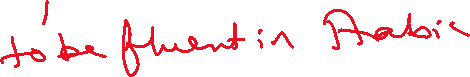 to be fluent in Arabic